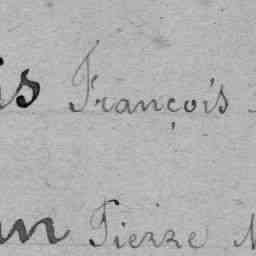 is François
an Pierre